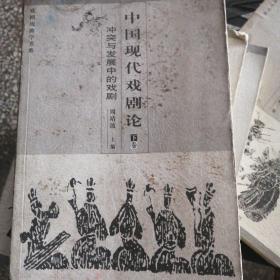 中国现代戏剧论
下卷
冲突与发展中的戏剧
周靖波 主编